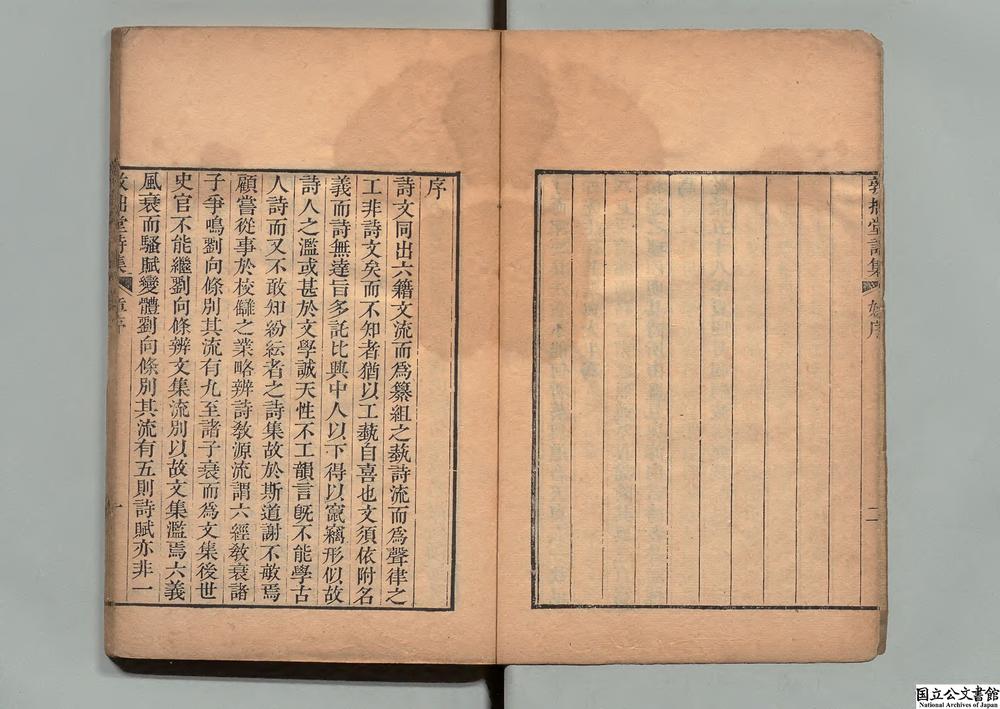 敦拙堂詩集
姚序
二
序
詩文同出六籍文流而爲纂組之藝詩流而爲聲律之
工非詩文矣而不知者猶以工藝自喜也文須依附名
義而詩無達旨多託比興中人以下得以竄竊形似故
詩人之濫或甚於文學誠天性不工韻言旣不能學古
人詩而又不敢知紛紜者之詩集故於斯道謝不敏焉
顧嘗從事於校讎之業略辨詩敎源流謂六經敎衰諸
子爭鳴劉向條別其流有九至諸子衰而爲文集後世
史官不能繼劉向條辨文集流別以故文集濫焉六義
風衰而騷賦變體劉向條別其流有五則詩賦亦非一
敦拙堂詩集
章序
一
国立公文書館
National Archives of Japan